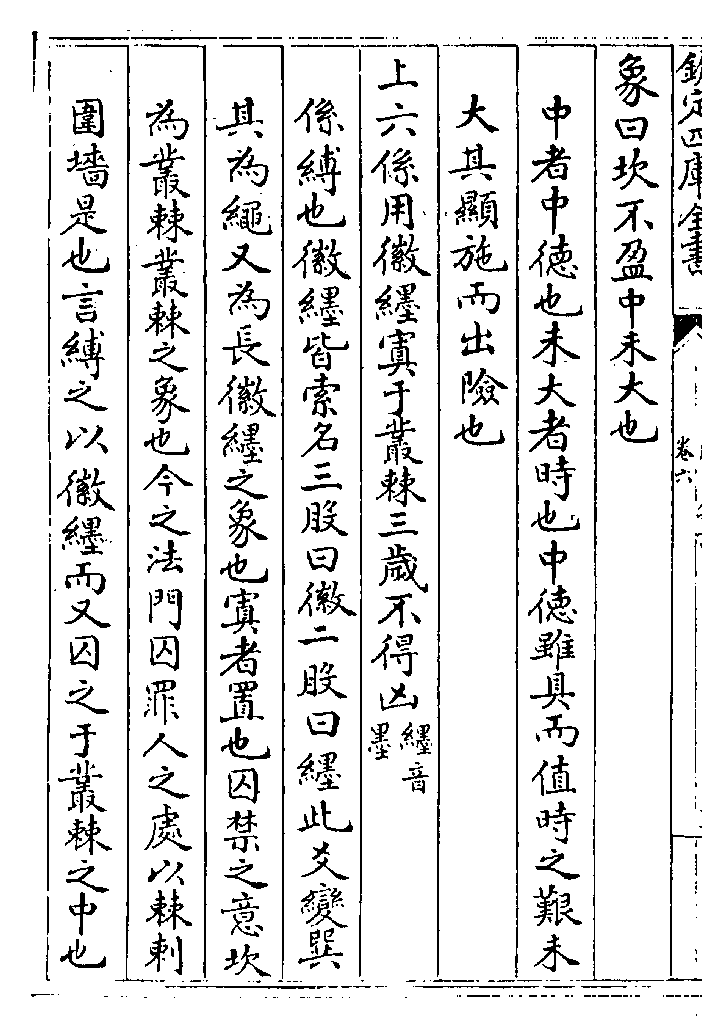 欽定四庫全書
卷六
象曰坎不盈中未大也
中者中德也未大者時也中德雖具而值時之艱未
大其顯施而出險也
上六係用徽纆寘于叢棘三歲不得凶纆音墨
係縛也徽纆皆索名三股曰徽二股曰纆此爻變巽
其為繩又為長徽纆之象也寘者置也囚禁之意坎
為叢棘叢棘之象也今之法門囚罪人之處以棘刺
圍墻是也言縛之以徽纆而又囚之于叢棘之中也